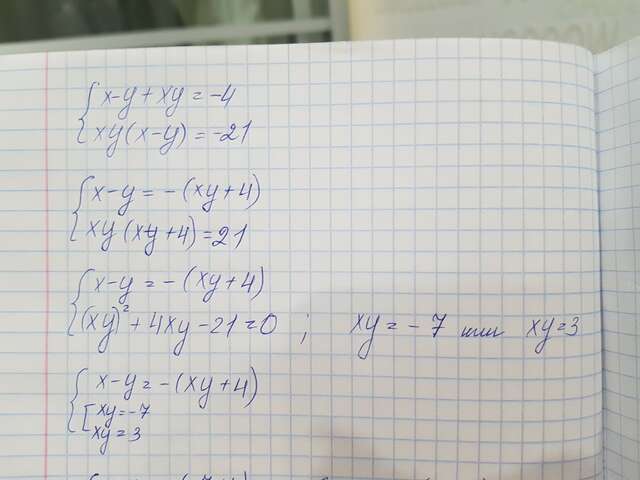 x-y+xy=-4
xy(x-y)=-21
x-y=-(xy+4)
xy(xy+4)=21
x-y=-(xy+4)
(xy)²+4xy-21=0 ; xy=-7 или xy=3
x-y=-(xy+4)
xy=-7
xy=3